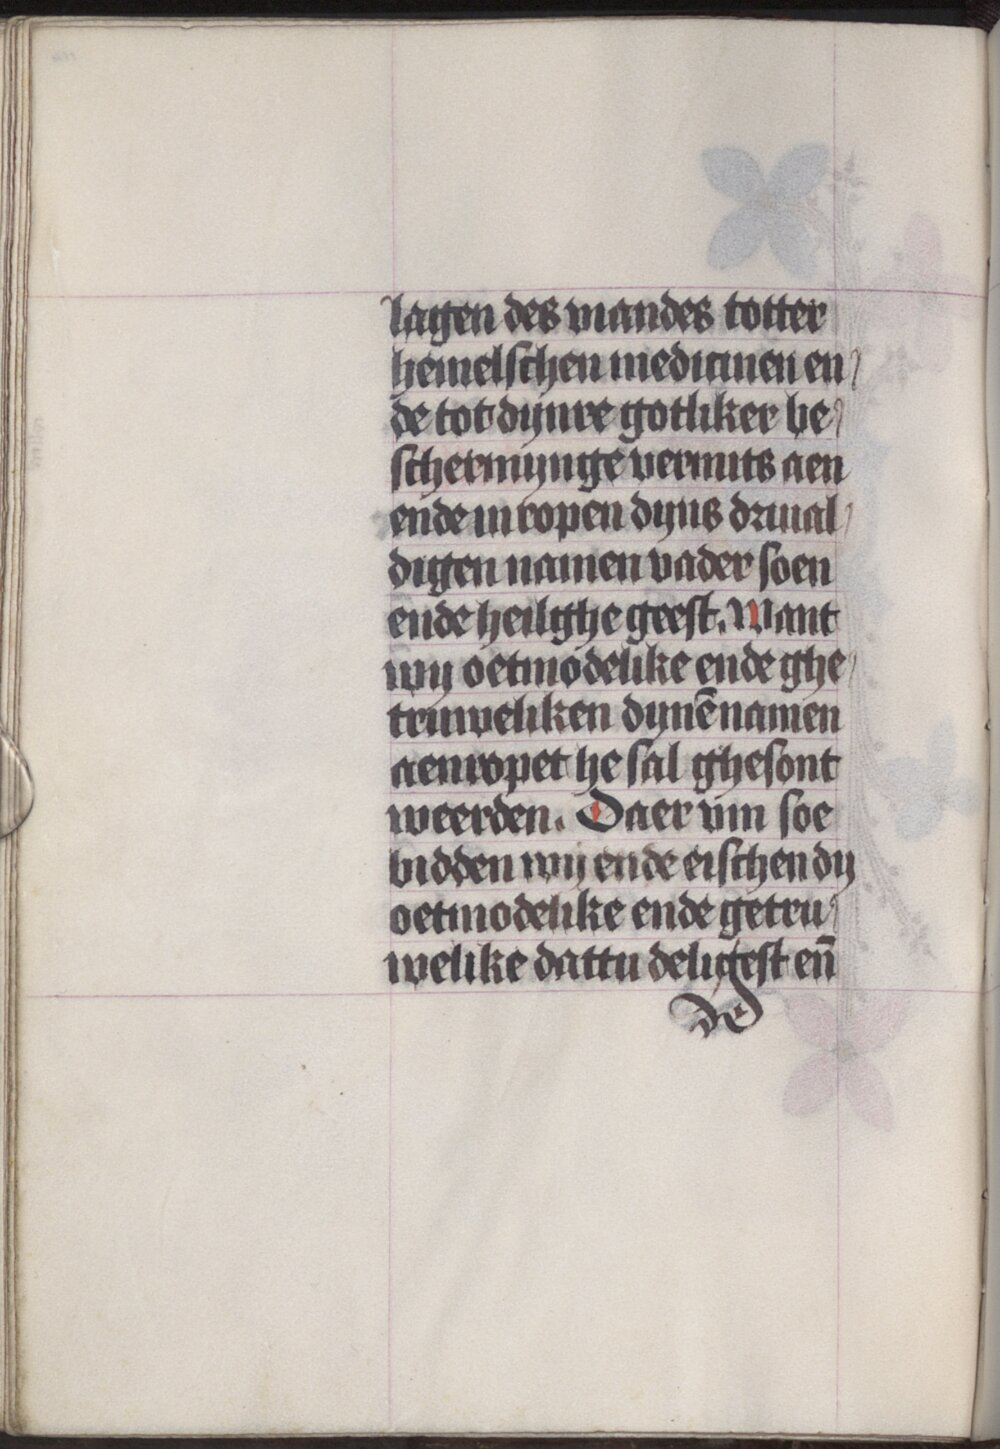 lagen des viandes totter
hemelschen medicinen en
de tot dijnre gotliker be
schermijnge vermits aen
ende in ropen dijns driual
digen namen vader soen
ende heilighe geest. Want
wij oetmodelike ende ghe
truweliken dijnē namen
aenropet he sal ghesont
weerden. Daer vm soe
bidden wij ende eischen dij
oetmodelike ende getru
welike dattu deligest en̄
de